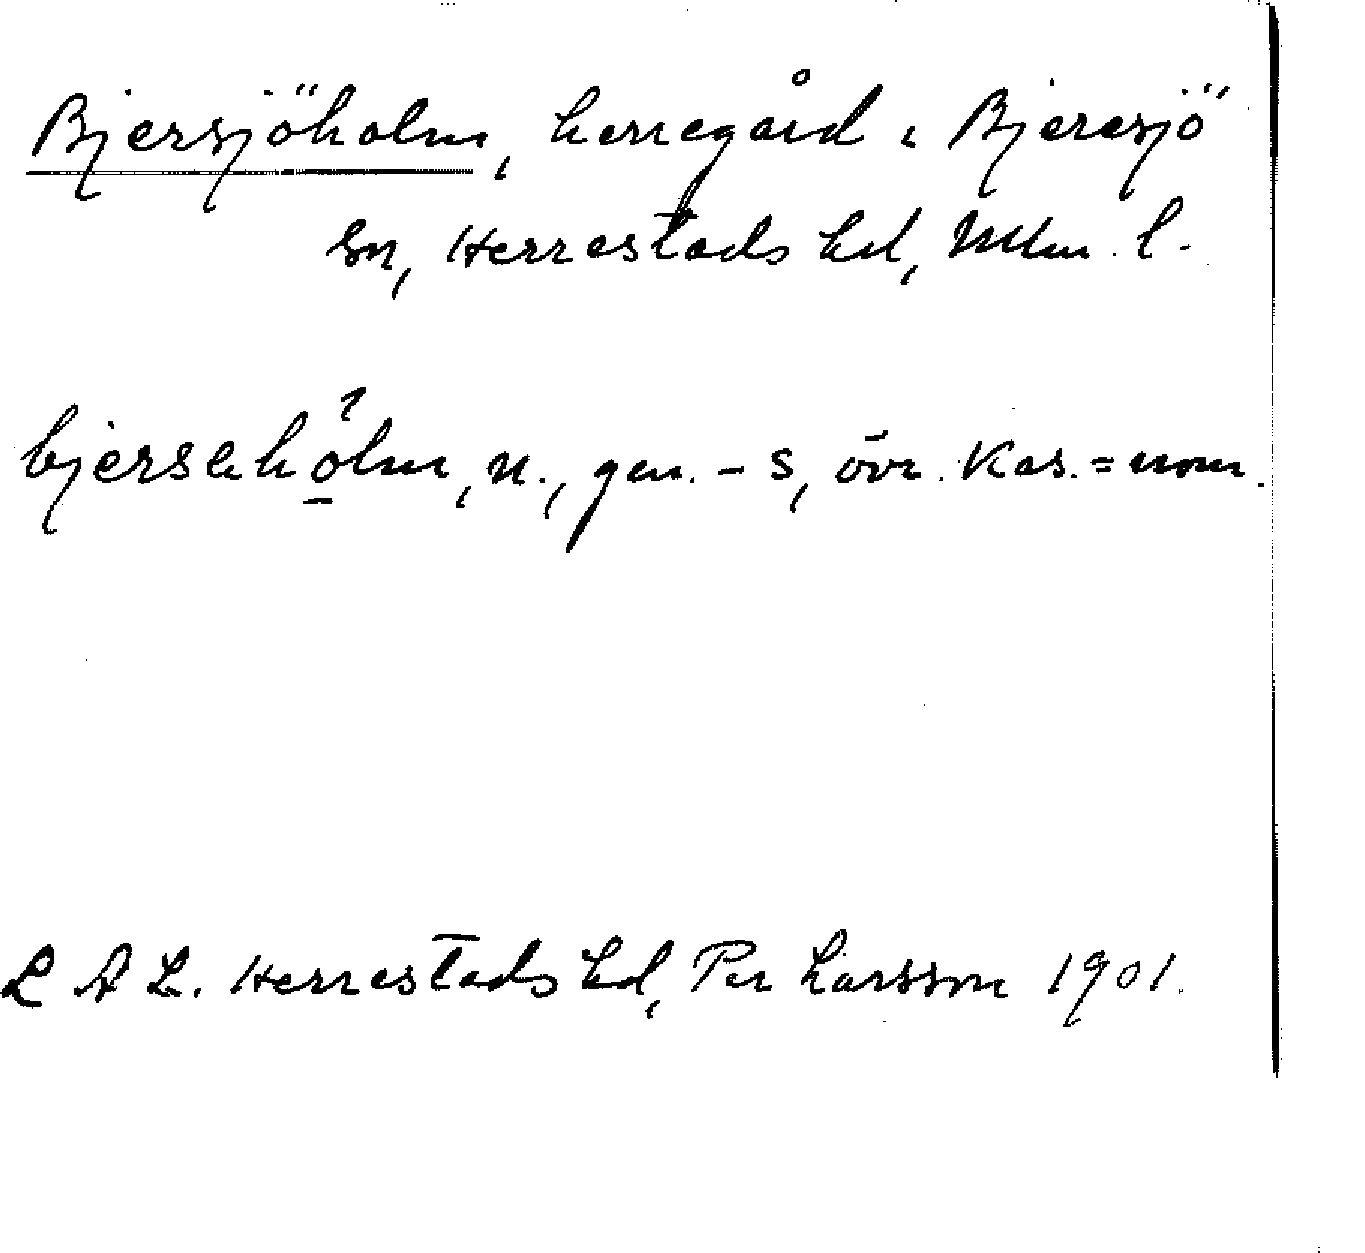 Bjersjöholm, herregård i Bjeresjö
sn, Herrestads hd, Mlm. l.
bjersəhølm, n., gen. -s, övr. kas. = nom.
L A L. Herrestads hd, Per Larsson 1901.